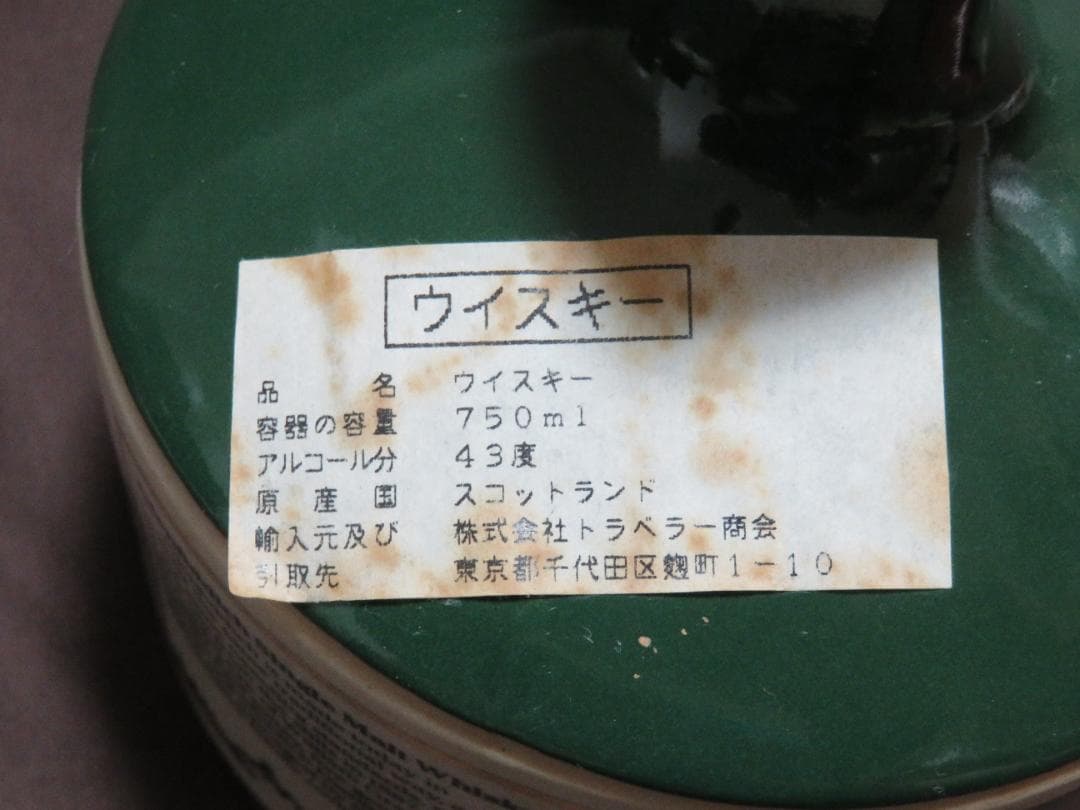 ウイスキー
品名 ウイスキー
容器の容量 750ml
アルコール分 43度
原産国 スコットランド
輸入元及び 株式会社トラベラー商会
引取先 東京都千代田区麹町1-10
Malt Whisk